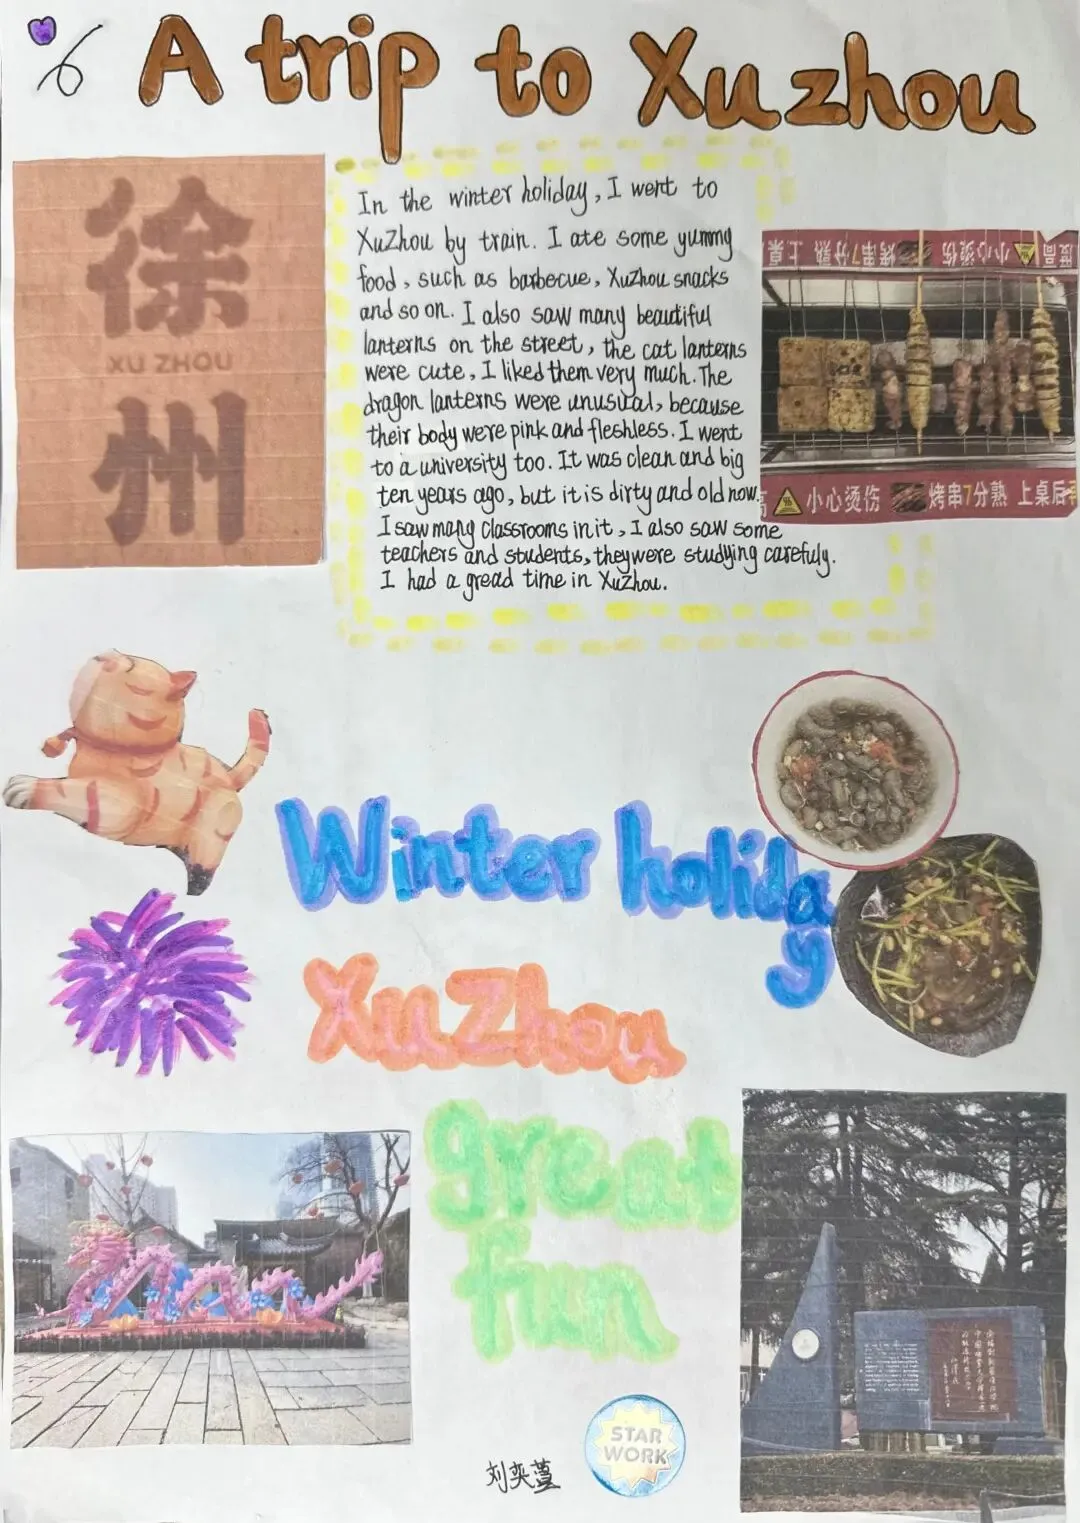 A trip to Xuzhou
徐
XU ZHOU
州
In the winter holiday, I went to
XuZhou by train. I ate some yummy
food, such as barbecue, XuZhou snacks
and so on. I also saw many beautiful
lanterns on the street, the cat lanterns
were cute, I liked them very much. The
dragon lanterns were unusual, because
their body were pink and fleshless. I went
to a university too. It was clean and big
ten years ago, but it is dirty and old now.
I saw many classrooms in it, I also saw some
teachers and students, they were studying carefuly.
I had a gread time in XuZhou.
小心烫伤 烤串7分熟 上桌
高 小心烫伤 烤串7分熟 上桌后
Winter holiday
XuZhou
great
fun
STAR
WORK